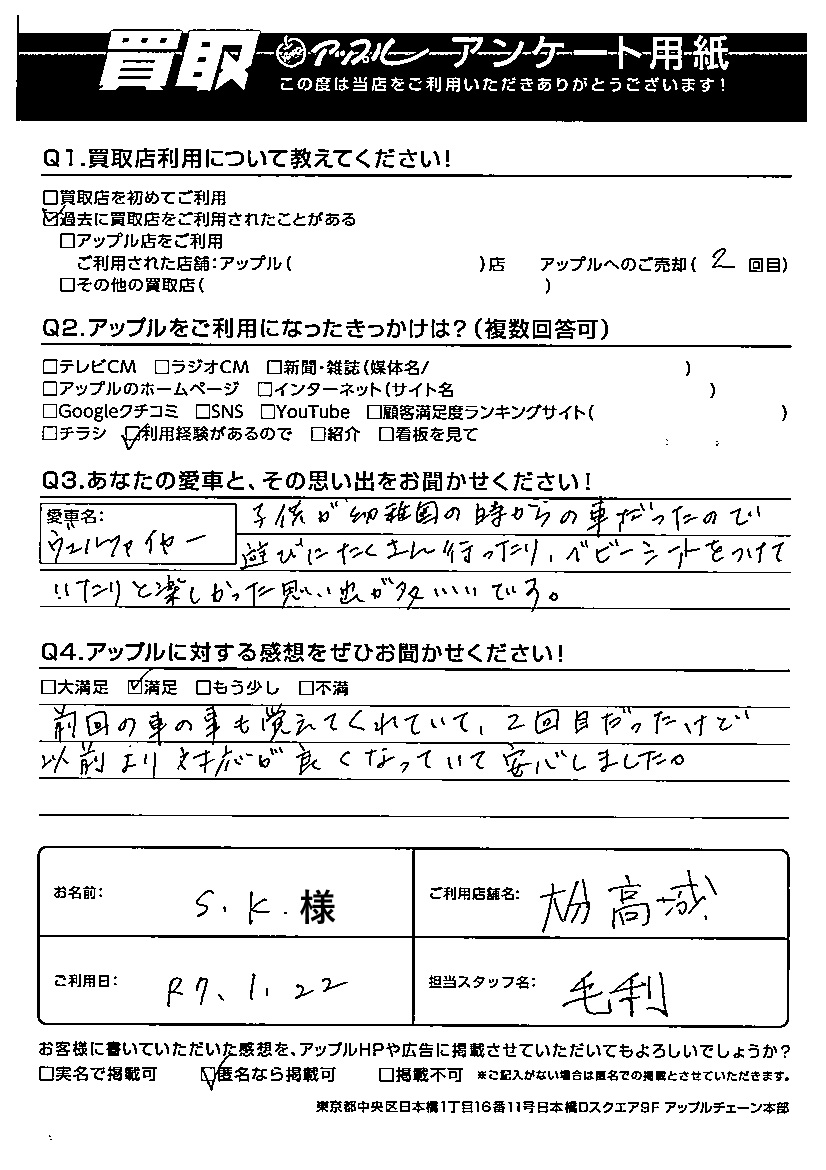 買取 アップル アンケート用紙
この度は当店をご利用いただきありがとうございます!
Q1.買取店利用について教えてください!
□買取店を初めてご利用
☑過去に買取店をご利用されたことがある
□アップル店をご利用
ご利用された店舗:アップル( )店 アップルへのご売却( 2 回目)
□その他の買取店( )
Q2.アップルをご利用になったきっかけは?(複数回答可)
□テレビCM □ラジオCM □新聞・雑誌(媒体名/ )
□アップルのホームページ □インターネット(サイト名 )
□Googleクチコミ □SNS □YouTube □顧客満足度ランキングサイト( )
□チラシ ☑利用経験があるので □紹介 □看板を見て
Q3.あなたの愛車と、その思い出をお聞かせください!
愛車名: 子供が幼稚園の時からの車だったので
ヴェルファイヤー 遊びにたくさん行ったり、ベビーシートをつけて
いたりと楽しかった思い出が多いいです。
Q4.アップルに対する感想をぜひお聞かせください!
□大満足 ☑満足 □もう少し □不満
前回の車の事も覚えてくれていて、2回目だったけど
以前より対応が良くなっていて安心しました。
お名前: S.K.様 ご利用店舗名: 大分高城
ご利用日: R7.1.22 担当スタッフ名: 毛利
お客様に書いていただいた感想を、アップルHPや広告に掲載させていただいてもよろしいでしょうか?
□実名で掲載可 ☑匿名なら掲載可 □掲載不可 ※ご記入がない場合は匿名での掲載とさせていただきます。
東京都中央区日本橋1丁目16番11号日本橋Dスクエア9F アップルチェーン本部